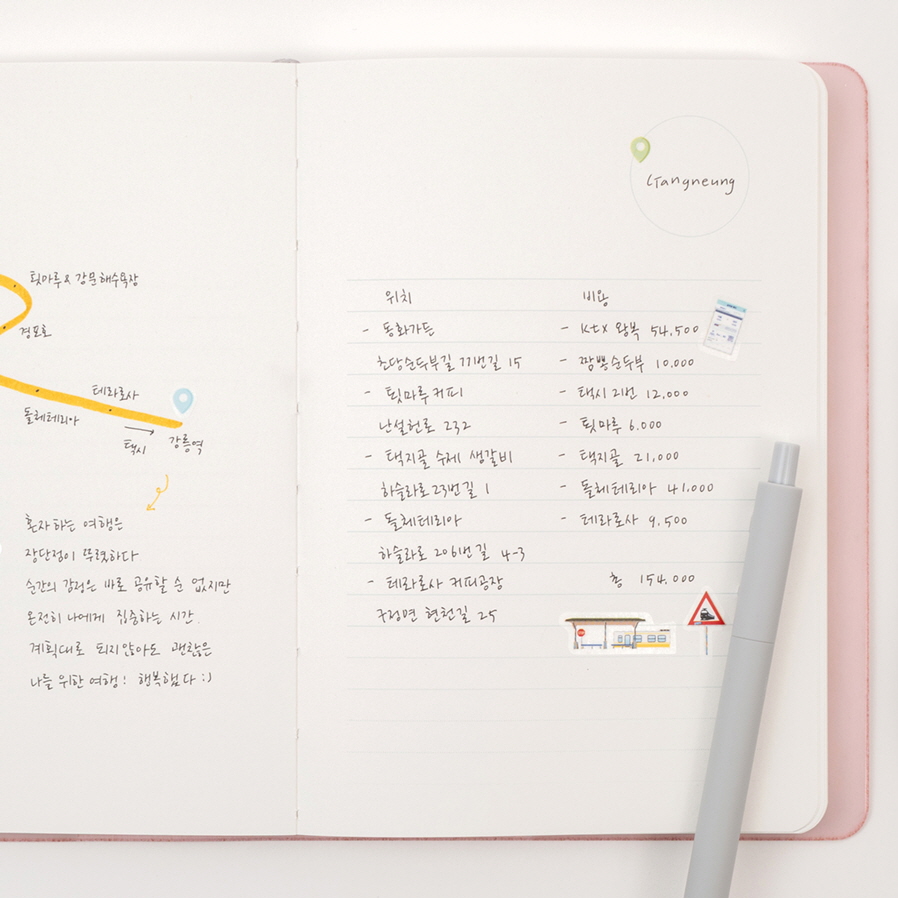 툇마루 & 강문해수욕장
경포호
테라로사
돌체테리아
택시
강릉역
혼자 하는 여행은
장단점이 뚜렷하다.
순간의 감정은 바로 공유할 순 없지만
온전히 나에게 집중하는 시간.
계획대로 되지 않아도 괜찮은
나를 위한 여행! 행복했다 :)
Gangneung
위치
- 동화가든
초당순두부길 77번길 15
- 툇마루 커피
난설헌로 232
- 택지골 수제 생갈비
하슬라로 23번길 1
- 돌체테리아
하슬라로 206번길 4-3
- 테라로사 커피공장
구정면 현천길 25
비용
- ktx 왕복 54,500
- 짬뽕순두부 10,000
- 택시 2번 12,000
- 툇마루 6.000
- 택지골 21,000
- 돌체테리아 41.000
- 테라로사 9,500
총 154.000